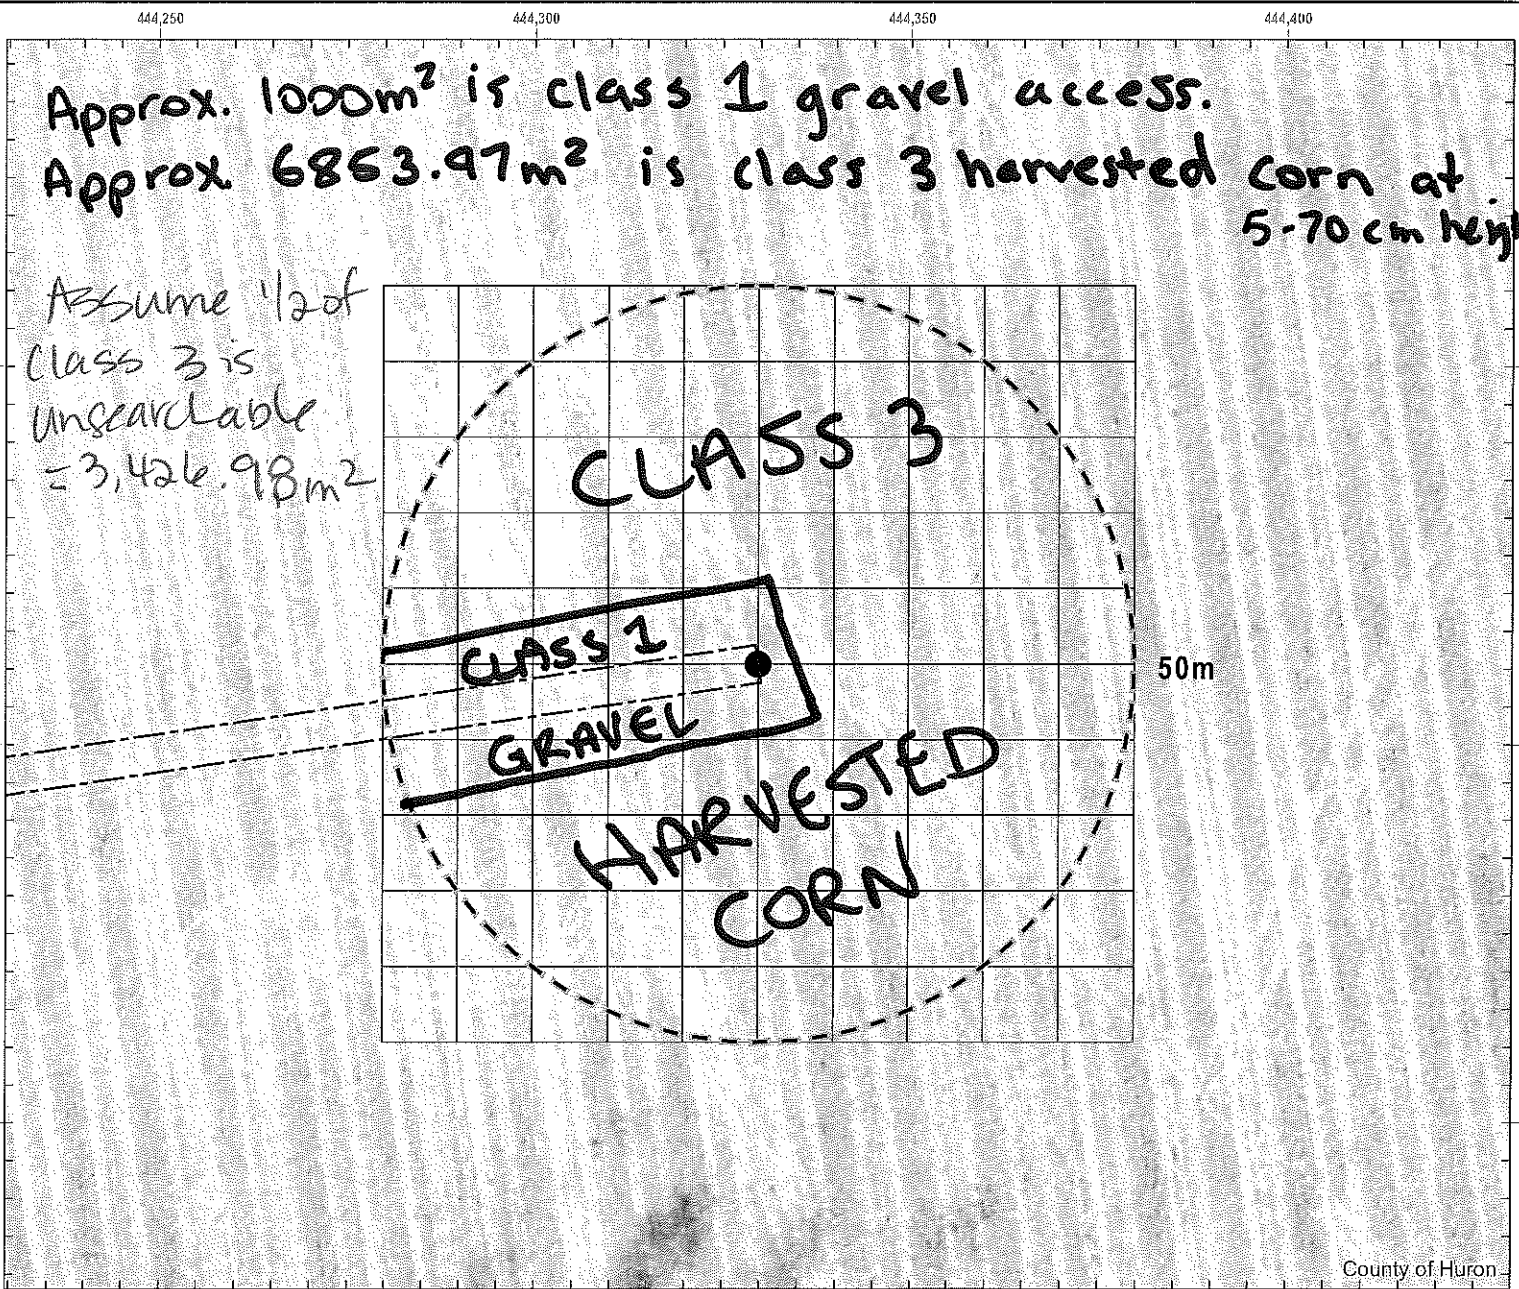 444,250 444,300 444,350 444,400
Approx. 1000m² is class 1 gravel access.
Approx. 6853.97m² is class 3 harvested corn at
5-70 cm heig
Assume 1/2 of
Class 3 is
unsearchable
= 3,426.98m²
CLASS 3
CLASS 1
50m
GRAVEL
HARVESTED
CORN
County of Huron